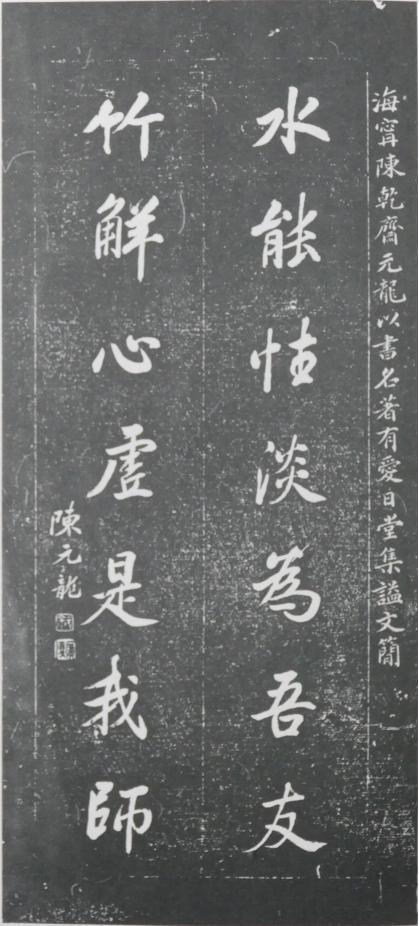 海甯陳乾齋元龍以書名著有愛日堂集謚文簡
水能性淡為吾友
竹解心虛是我師
陳元龍